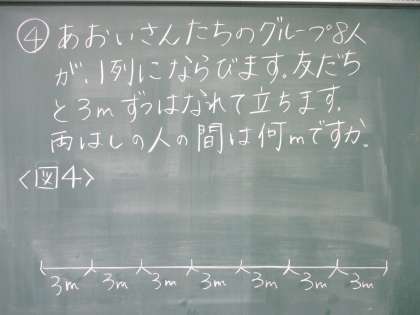 ④ あおいさんたちのグループ8人
が、1列にならびます。友だち
と3mずつはなれて立ちます。
両はしの人の間は何mですか。
<図4>
3m 3m 3m 3m 3m 3m 3m